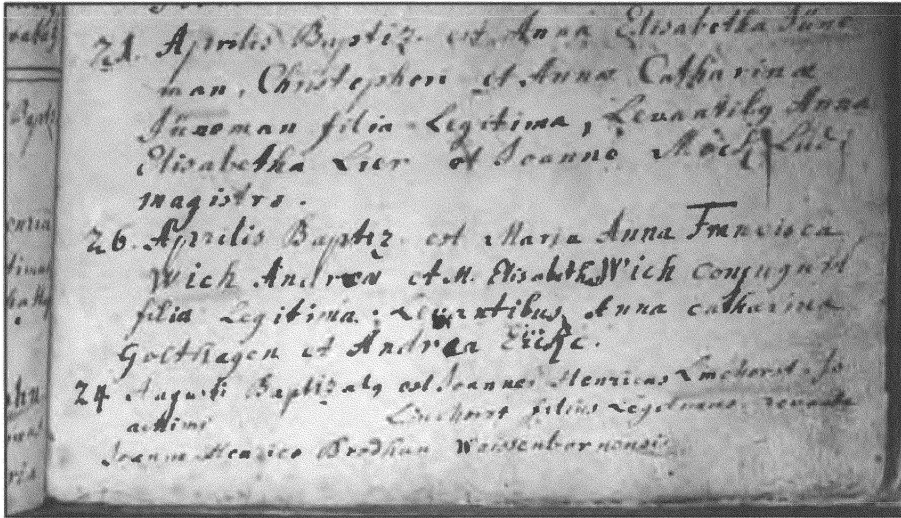 21. Aprilis Baptiz. est Anna Elisabetha Jüne
man, Christopheri et Annæ Catharinæ
Jüneman filia Legitima, Levantibq Anna
Elisabetha Lier et Joanne Möck Ludi
magistro.
26. Aprilis Baptiz. est Maria Anna Francisca
Wich Andreæ et M. Elisabeth Wich conjugum
filia Legitima. Levantibus Anna catharina
Golthagen et Andrea
24 Augusti Baptizatq est Joannes Henricus Linchorst Jo
achimi Linchorst filius Legitimus levante
Joanne Henrico Brodhun Weissenbornensis